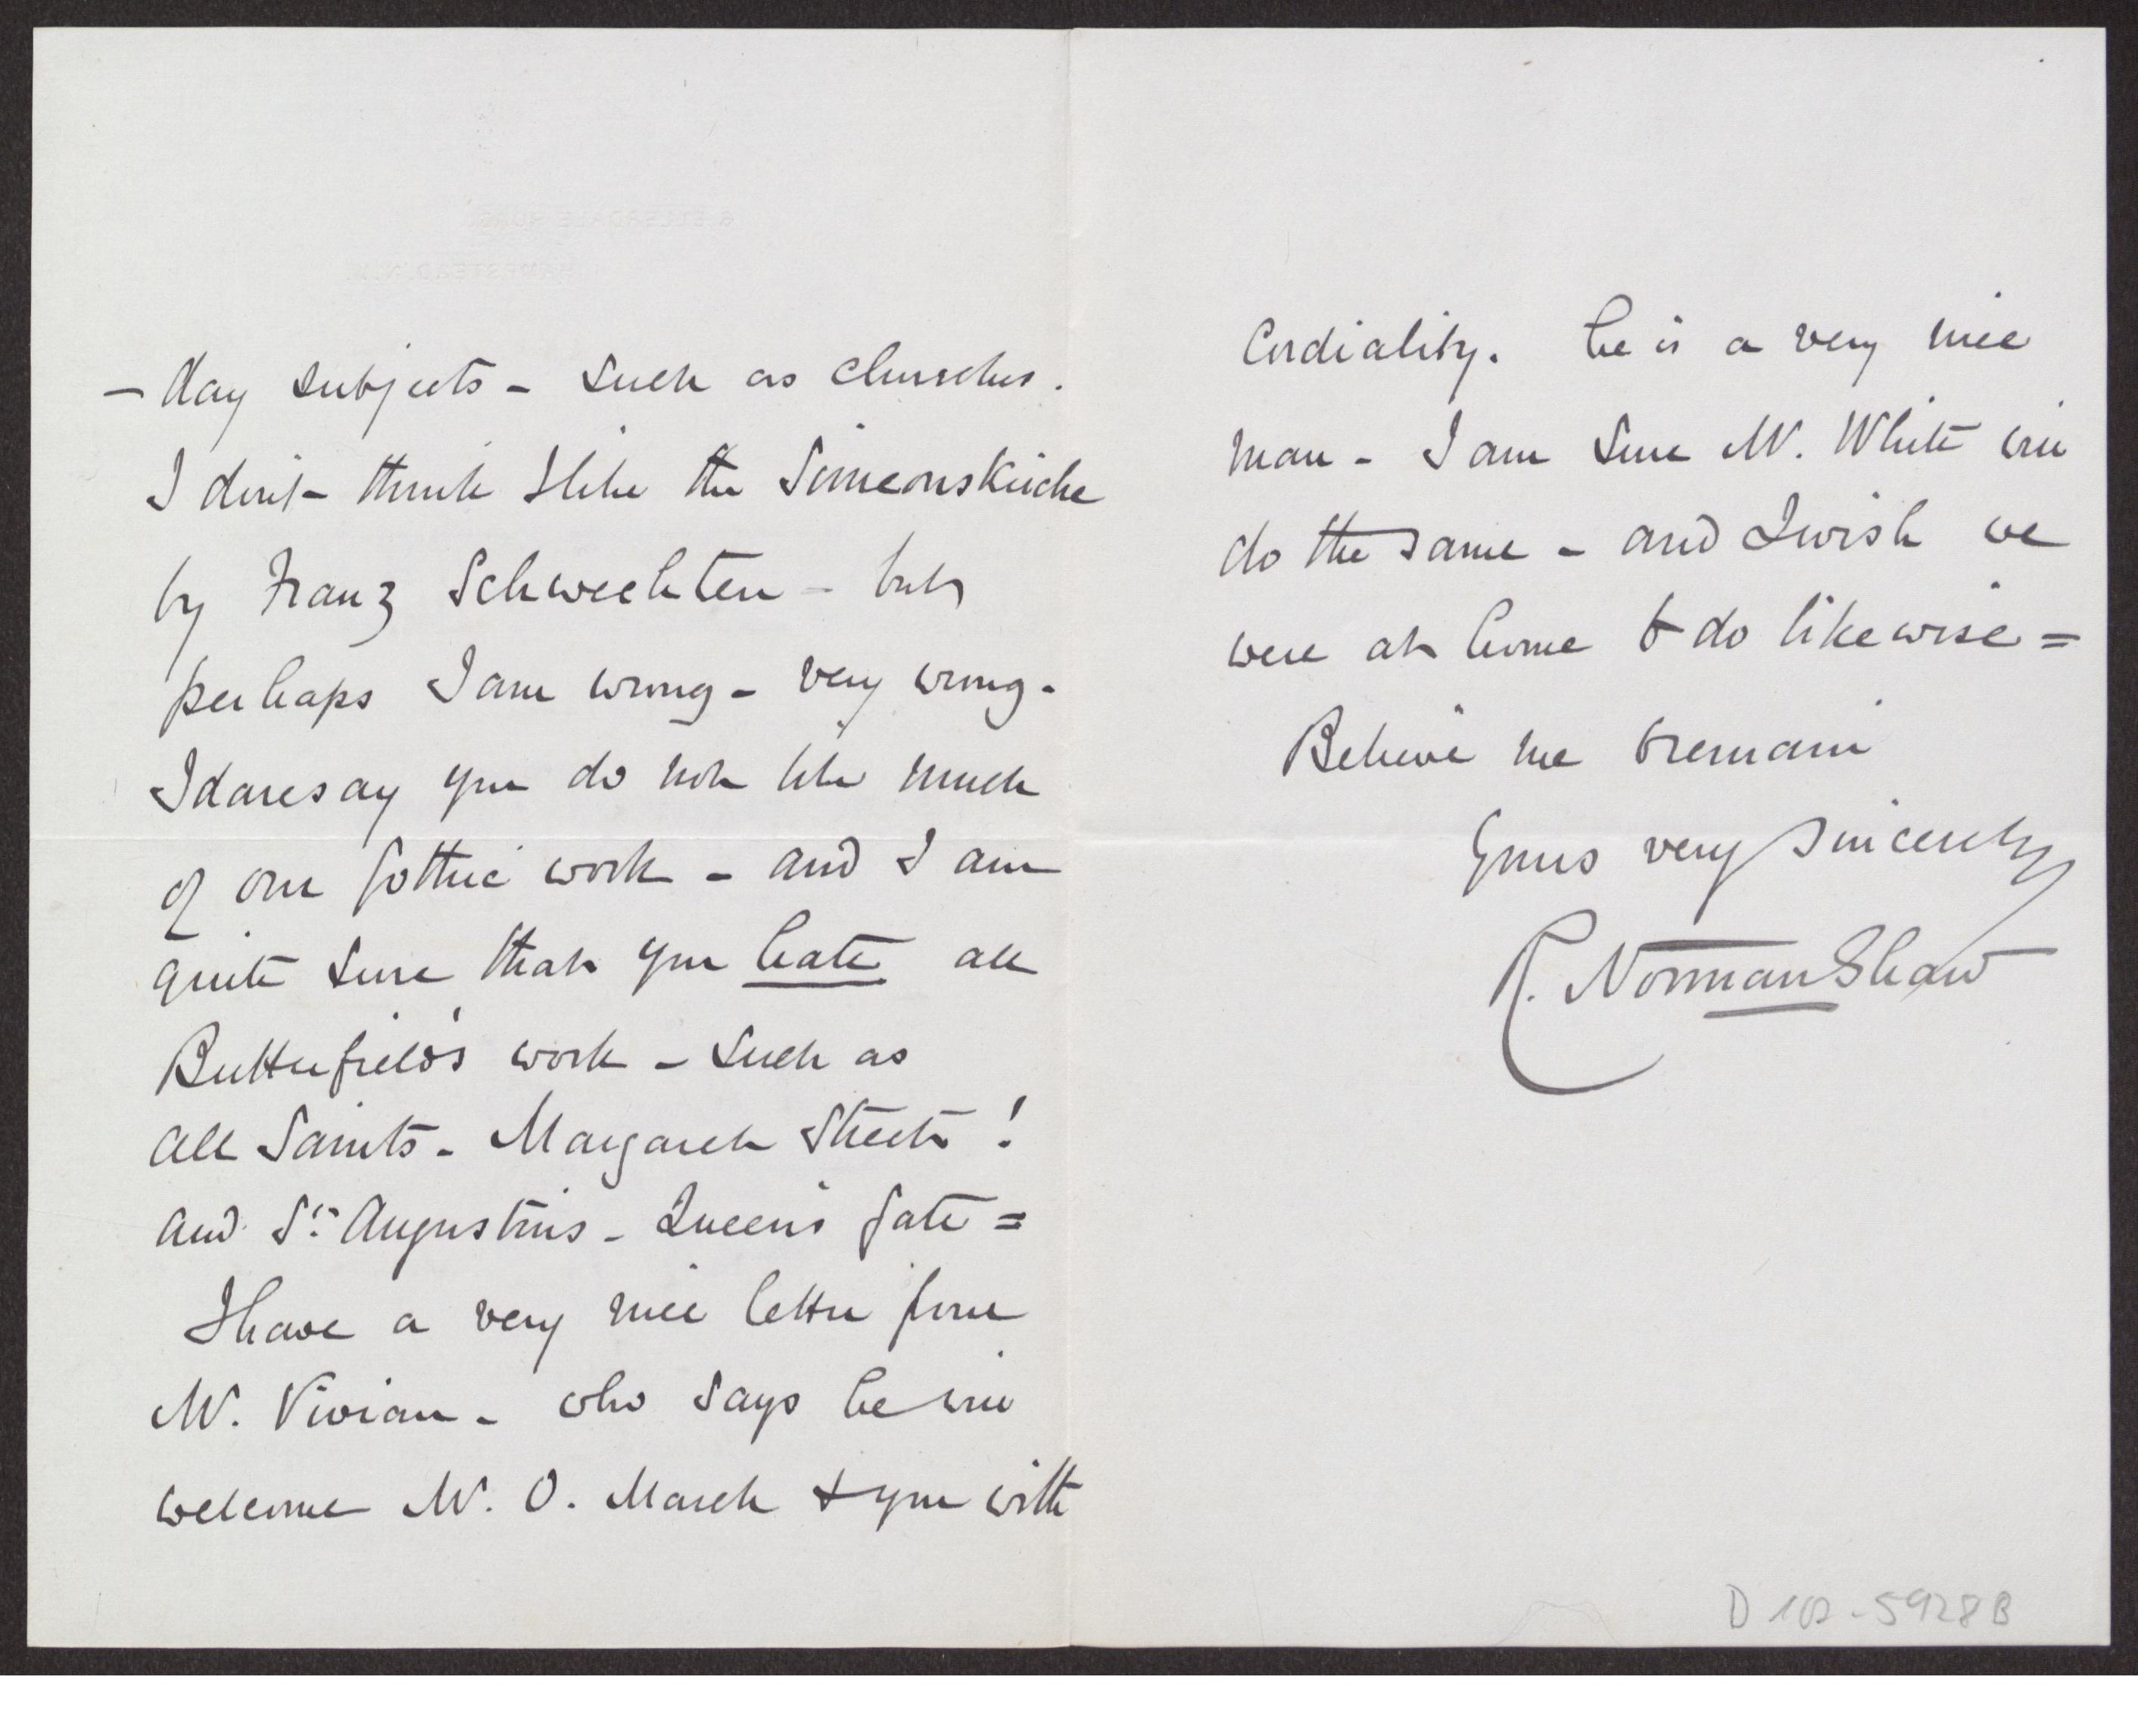 - day subjects - such as churches.
I don't think I like the Simeonskirche
by Franz Schwechten - but
perhaps I am wrong - very wrong.
I daresay you do not like much
of our Gothic work - and I am
quite sure that you hate all
Butterfield's work - such as
All Saints - Margaret Street!
and St. Augustins - Queen's Gate =
I have a very nice letter from
Mr. Vivian - who says he will
welcome Mr. O. March & you with
Cordiality. he is a very nice
man - I am sure Mr. White will
do the same - and I wish we
were at home to do likewise =
Believe me to remain
Yours very sincerely
R. Norman Shaw
D 102-5928B